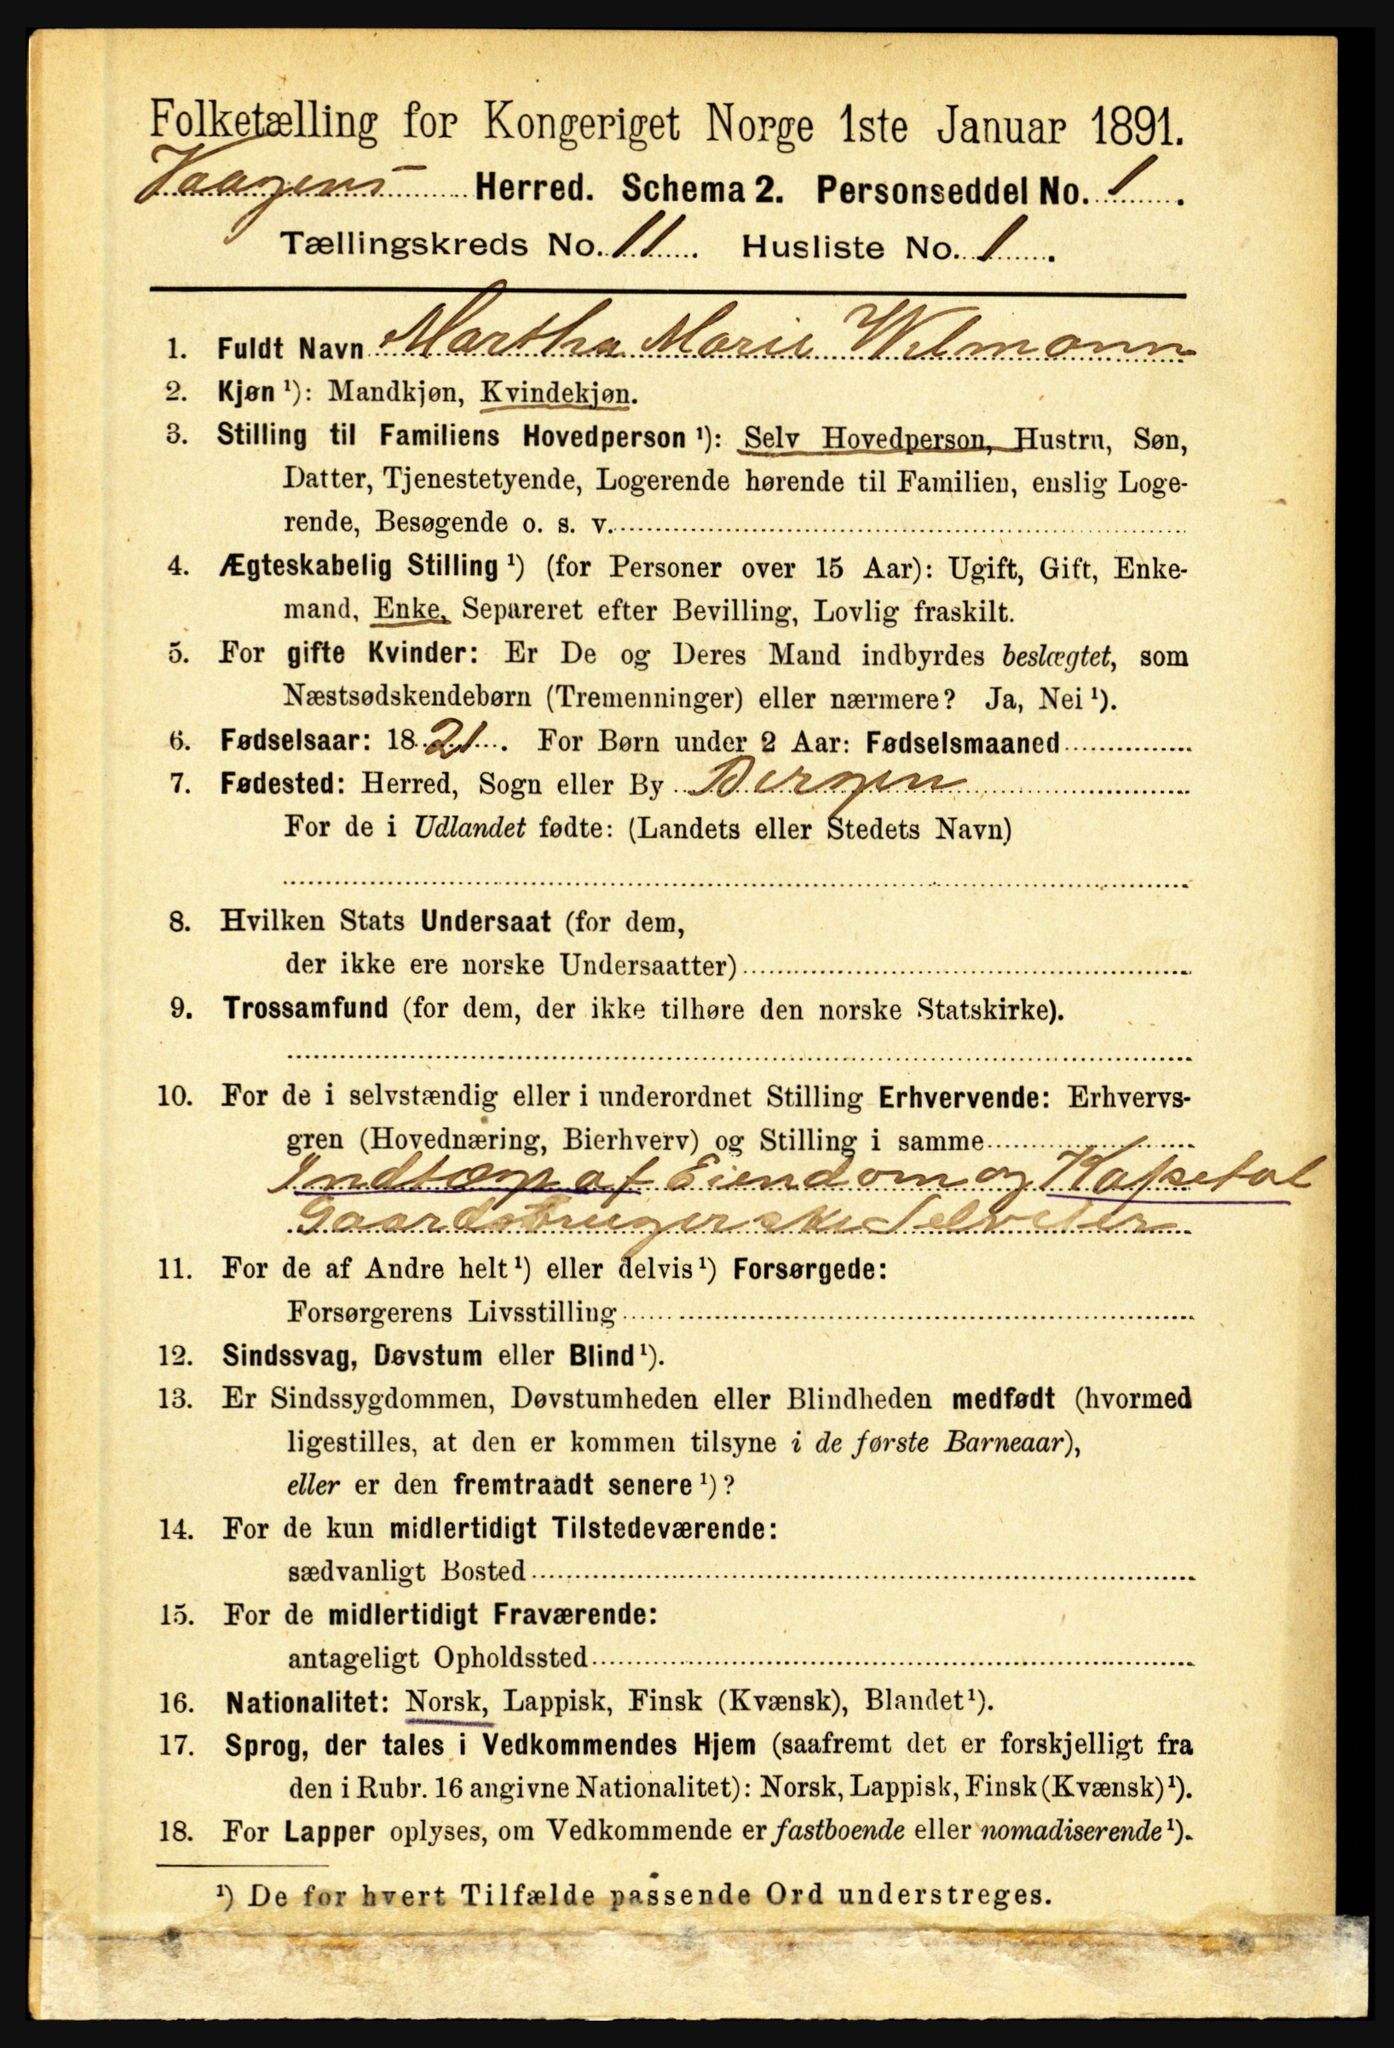 Folketælling for Kongeriget Norge 1ste Januar 1891.
Vaagens Herred. Schema 2. Personseddel No. 1.
Tællingskreds No. 11. Husliste No. 1.
1. Fuldt Navn Martha Marie Wilmann
2. Kjøn ¹): Mandkjøn, Kvindekjøn.
3. Stilling til Familiens Hovedperson ¹): Selv Hovedperson, Hustru, Søn,
Datter, Tjenestetyende, Logerende hørende til Familien, enslig Loge-
rende, Besøgende o. s. v.
4. Ægteskabelig Stilling ¹) (for Personer over 15 Aar): Ugift, Gift, Enke-
mand, Enke, Separeret efter Bevilling, Lovlig fraskilt.
5. For gifte Kvinder: Er De og Deres Mand indbyrdes beslægtet, som
Næstsødskendebørn (Tremenninger) eller nærmere? Ja, Nei ¹).
6. Fødselsaar: 1821. For Børn under 2 Aar: Fødselsmaaned
7. Fødested: Herred, Sogn eller By Bergen
For de i Udlandet fødte: (Landets eller Stedets Navn)
8. Hvilken Stats Undersaat (for dem,
der ikke ere norske Undersaatter)
9. Trossamfund (for dem, der ikke tilhøre den norske Statskirke).
10. For de i selvstændig eller i underordnet Stilling Erhvervende: Erhvervs-
gren (Hovednæring, Bierhverv) og Stilling i samme
Indtægt af Eiendom og Kapital
Gaardbrugerske Selveier
11. For de af Andre helt ¹) eller delvis ¹) Forsørgede:
Forsørgerens Livsstilling
12. Sindssvag, Døvstum eller Blind ¹).
13. Er Sindssygdommen, Døvstumheden eller Blindheden medfødt (hvormed
ligestilles, at den er kommen tilsyne i de første Barneaar),
eller er den fremtraadt senere ¹)?
14. For de kun midlertidigt Tilstedeværende:
sædvanligt Bosted
15. For de midlertidigt Fraværende:
antageligt Opholdssted
16. Nationalitet: Norsk, Lappisk, Finsk (Kvænsk), Blandet ¹).
17. Sprog, der tales i Vedkommendes Hjem (saafremt det er forskjelligt fra
den i Rubr. 16 angivne Nationalitet): Norsk, Lappisk, Finsk (Kvænsk) ¹).
18. For Lapper oplyses, om Vedkommende er fastboende eller nomadiserende ¹).
¹) De for hvert Tilfælde passende Ord understreges.